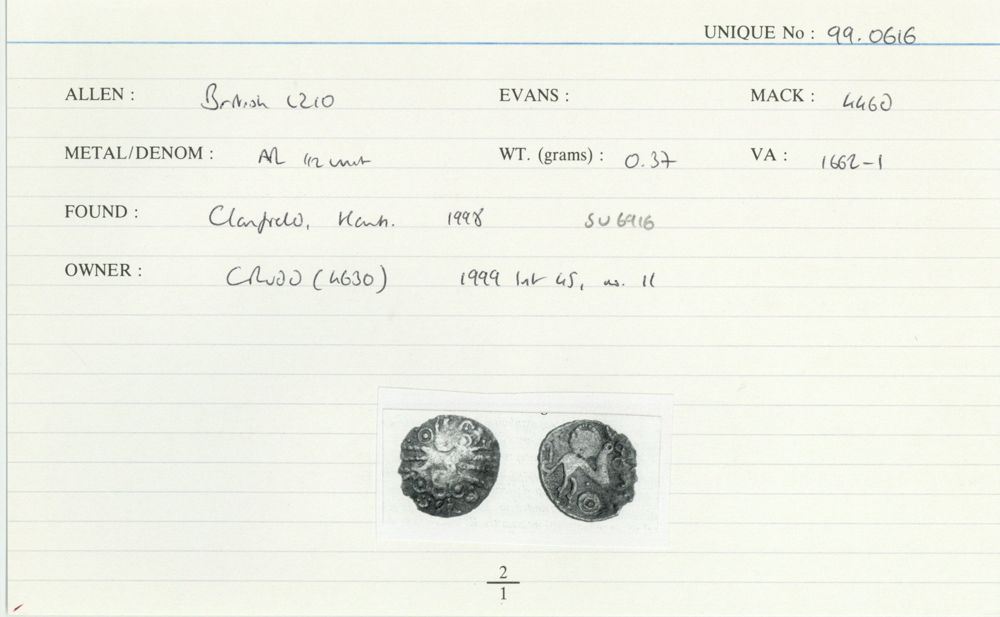 UNIQUE No : 99.0616
ALLEN : British LZ10 EVANS : MACK : 446d
METAL/DENOM : AR 1/2 unit WT. (grams) : 0.37 VA : 1662-1
FOUND : Clanfield, Hants. 1998 SU 6916
OWNER : CRUDD (4630) 1999 list 45, no. 11
2
1